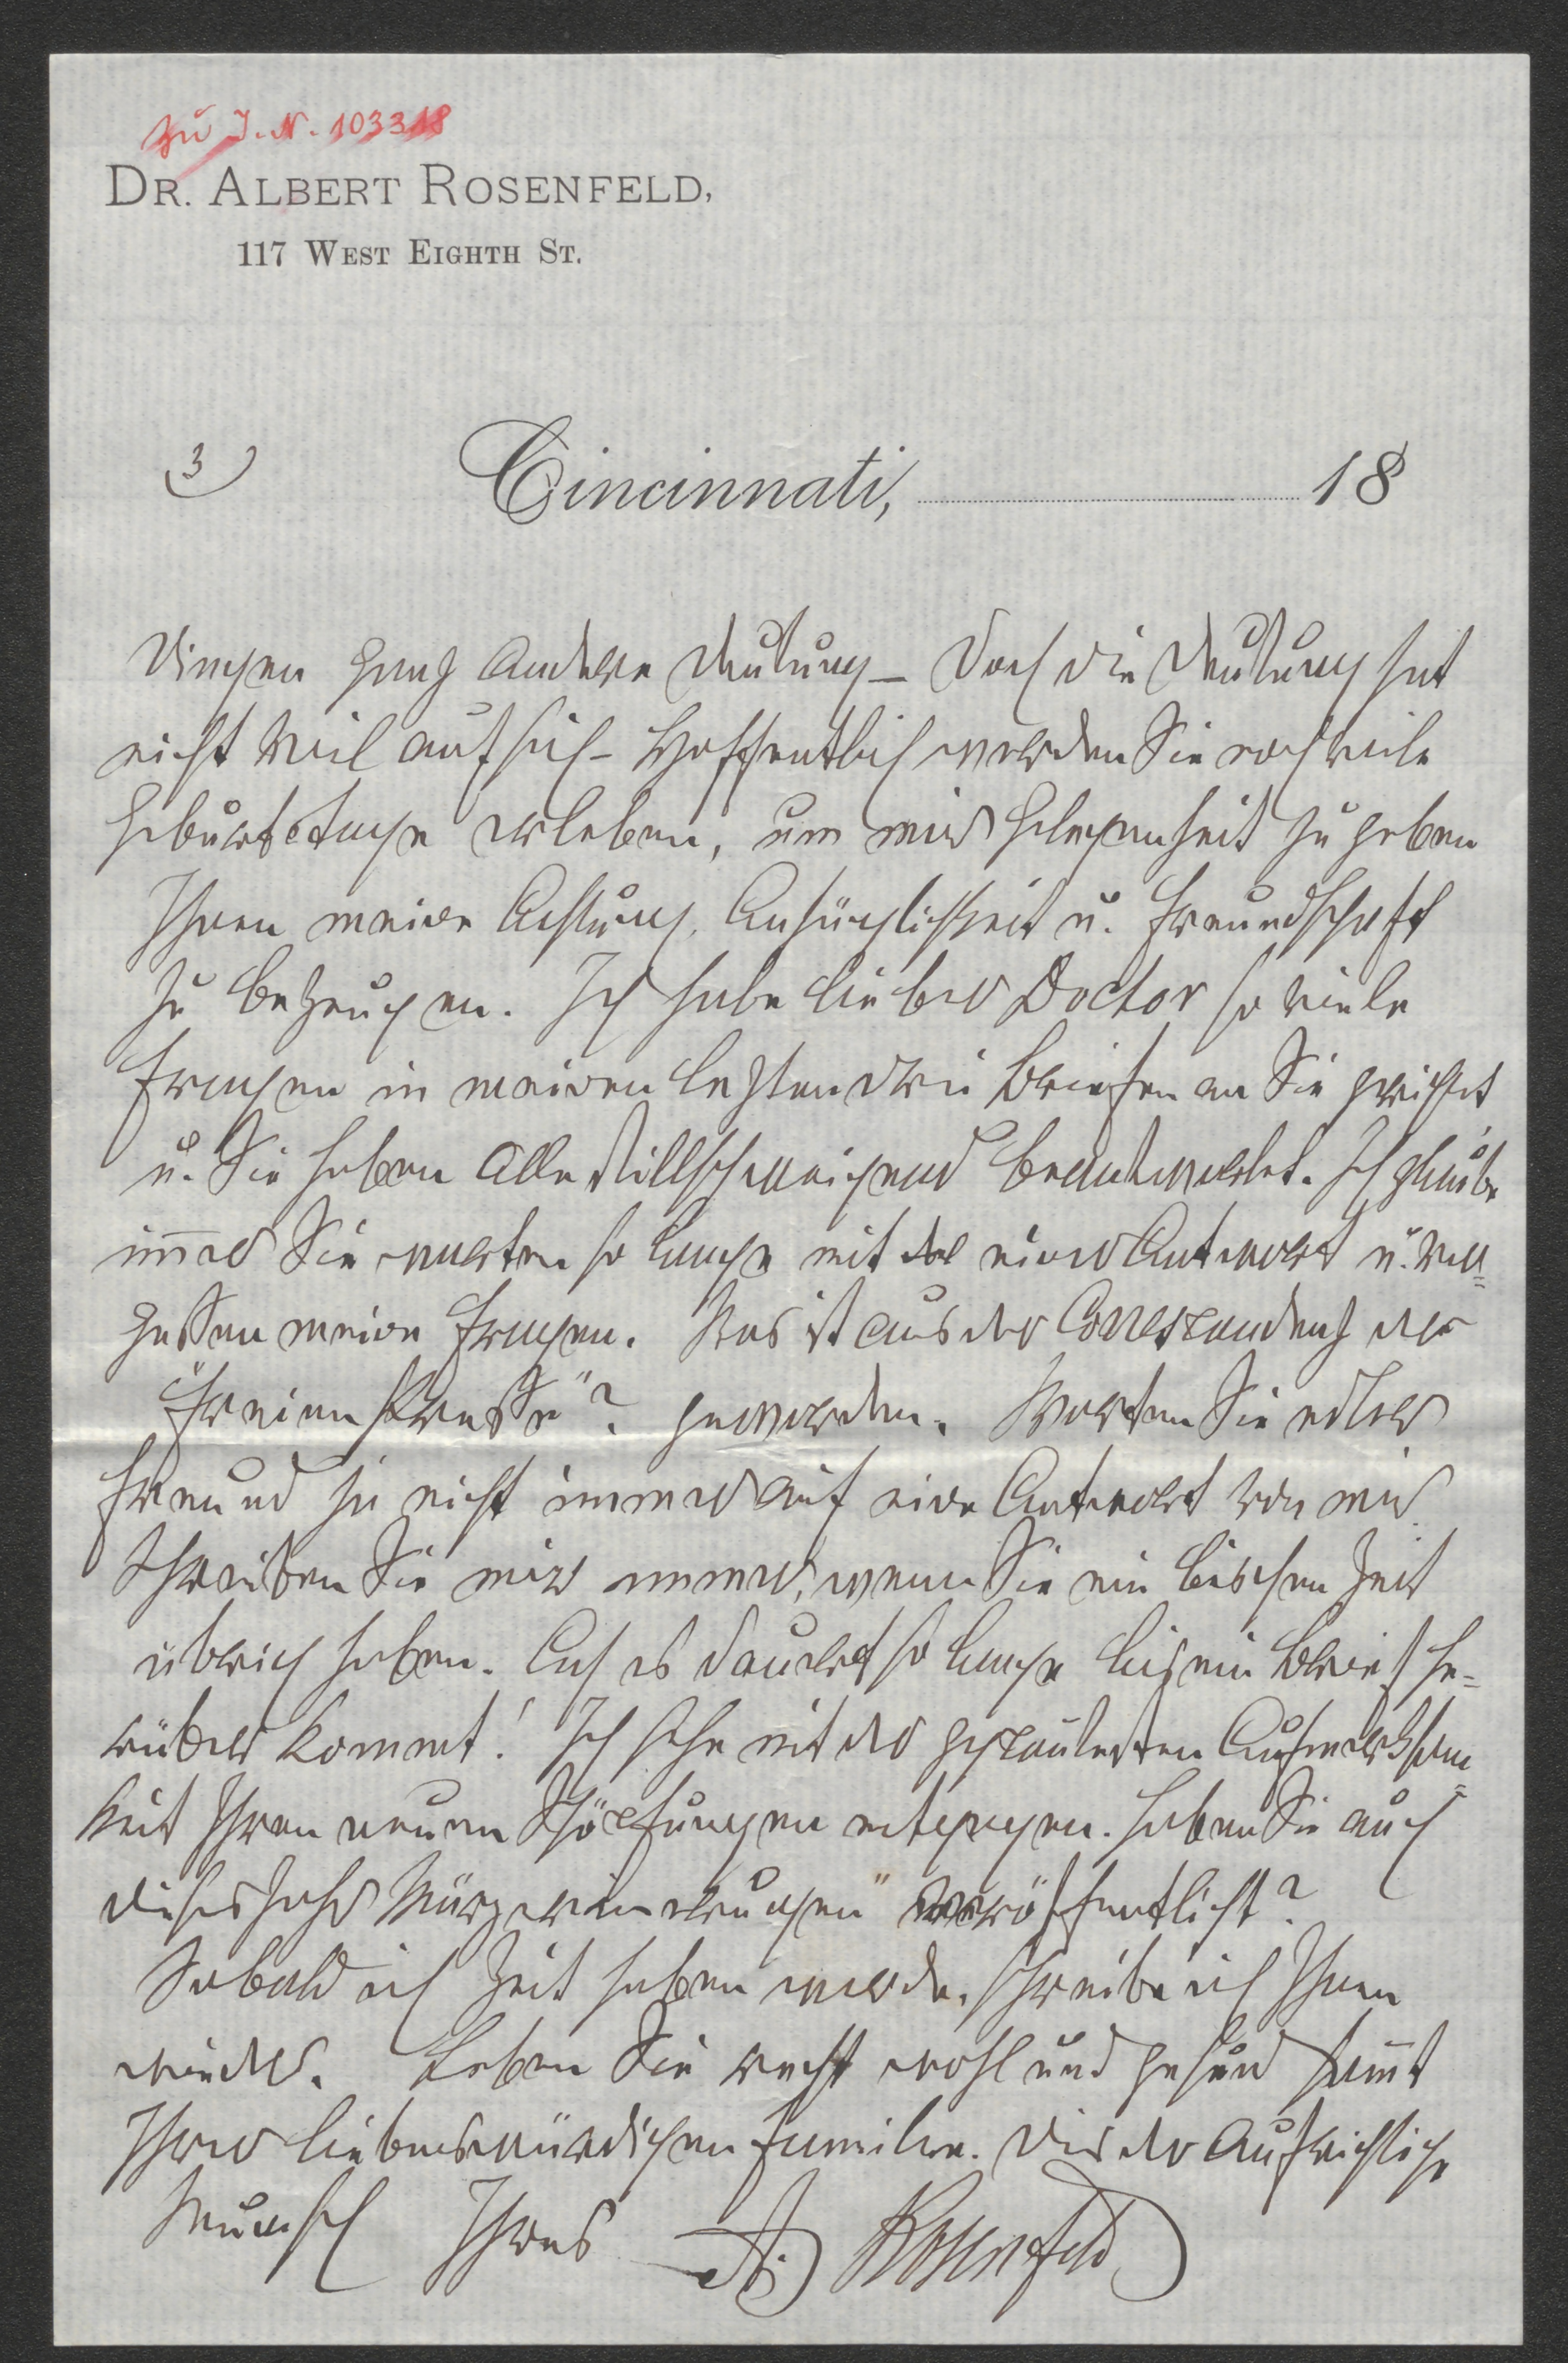 zu J. N. 103318
DR. ALBERT ROSENFELD,
117 WEST EIGHTH ST.
3)
Cincinnati, 18
Dingen ganz andere Deutung – Doch die Deutung hat
nicht viel auf sich – Hoffentlich werden Sie noch viele
Geburtstage erleben, um mir Gelegenheit zu geben
Ihnen meine Achtung, Anhänglichkeit u. Freundschaft
zu bezeugen. Ich habe lieber Doctor so viele
Fragen in meinen letzten drei Briefen an Sie gerichtet
u. Sie haben alle stillschweigend beantwortet. Ich glaube
im̅er Sie warten so lange mit einer Antwort u. ver=
gessen meine Fragen. Was ist aus der Correspondenz der
„Freien Presse"? geworden. Warten Sie edler
Freund ja nicht immer auf eine Antwort von mir
Schreiben Sie mir immer, wenn Sie ein bischen Zeit
übrig haben. Ach es dauert so lange bis ein Brief he=
rüber kommt! Ich sehe mit der gespantesten Aufmerksam=
keit Ihren neuen Schöpfungen entgegen. Haben Sie auch
dieses Jahr Märzerinnerungen" veröffentlicht?
Sobald ich Zeit haben werde, schreibe ich Ihnen
wieder. Leben Sie recht wohl und gesund sam̅t
Ihrer liebenswürdigen Familie. Dis der aufrichtige
Wunsch Ihres A. Rosenfeld